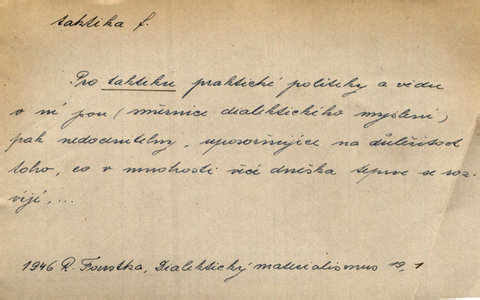 taktika f.
Pro taktiku praktické politiky a vědu
o ní jsou (směrnice dialektického myšlení)
pak nedocenitelny, upozorňujíce na důležitost
toho, co v mnohosti věcí dneška teprve se roz-
víjí, ...
1946 R. Foustka, Dialektický materialismus 19, 1